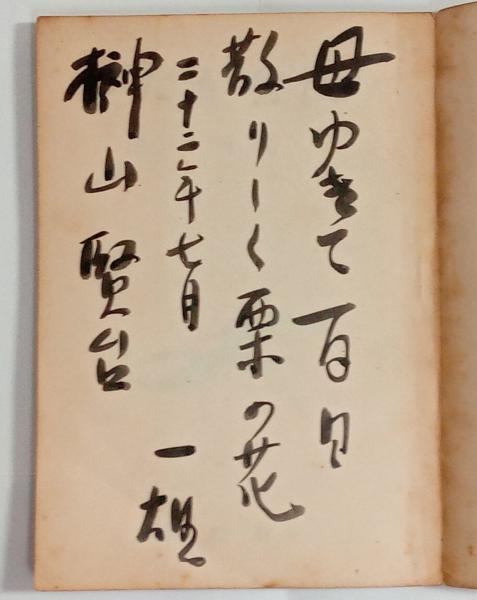 母ゆきて百日
散りしく栗の花
二十二年七月
榊山賢台
一雄